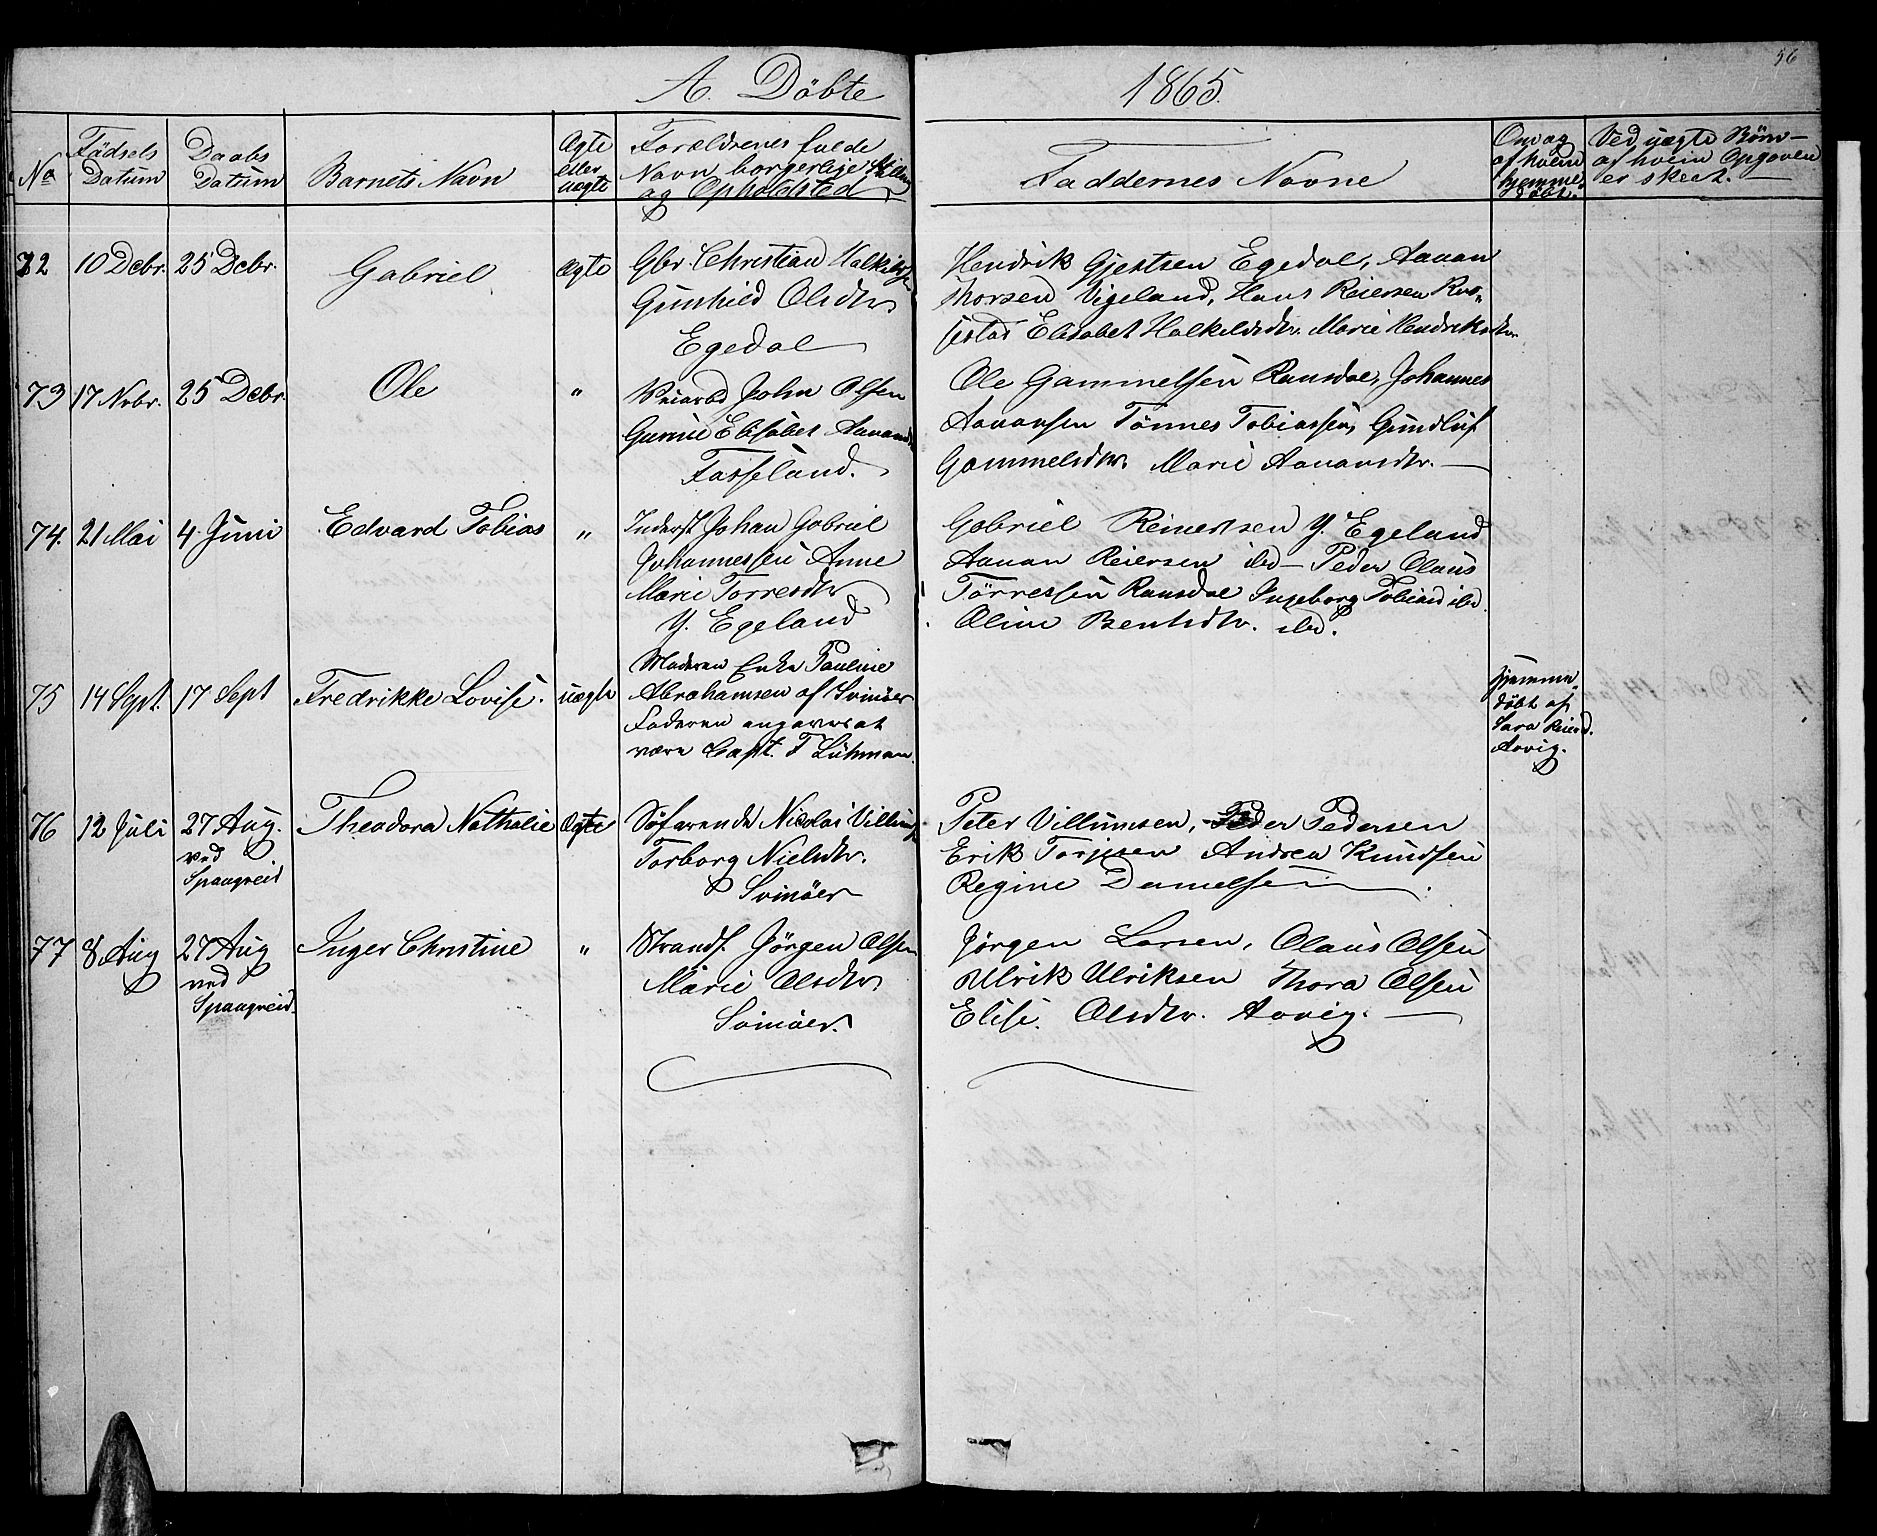 A. Döbte
1865.
56
No
Födsels Datum
Daabs Datum
Barnets Navn
Ægte eller uægte
Forældrenes fulde
Navn borgerlige Stilling
og Opholdsted
Faddernes Navne
Om og
af hvem
hjemme
döbt.
Ved uægte Börn
af hvem Opgaven
er skeet.
72 10 Debr. 25 Debr. Gabriel Ægte
Gbr. Christian Halkilds
Gunhild Olsdtr
Egedal
Hendrik Gjertsen Egedal, Aanan
Thorsen Vigeland, Hans Reiersen Ros-
sestad Elisabet Halkildsdtr. Marie Hendriksdtr.
73 17 Nvbr. 25 Debr. Ole "
John Olsen
Gurine Elisabet Aanands
Fasseland.
Ole Gammelsen Ramsdal, Johannes
Aanansen Tönnes Tobiassen, Gundluf
Gammelsdtr. Marie Aanansdtr.
74. 21 Mai 4. Juni Edvard Tobias "
Inderst Johan Gabriel
Johannessen Anne
Marie Torresdtr
Y. Egeland
Gabriel Reinertsen Y. Egeland
Aanan Reiersen ibd - Peder Olaus
Törressen Ramsdal Ingeborg Tobiasd ibd.
Oline Bentsdtr. ibd.
75 14 Sept. 17 Sept Fredrikke Lovise. uægte
Moderen Enke Pauline
Abrahamsen af Svinöer
Faderen angaves at
være Capt. F Lühman.
hjemme
döbt af
Sara Reiersd.
Aavig.
76 12 Juli 27 Aug. ved Spangreid Theodora Nathalie Ægte
Söfarende Nicolai Villums
Torborg Nielsdtr.
Svinöer
Peter Villumsen, Peder Pedersen
Erik Torjesen Andrea Knudsen
Regine Danielsen
77 8 Aug 27 Aug ved Spangreid. Inger Christine "
Strands. Jörgen Olsen
Marie Olsdtr.
Svinöer.
Jörgen Larsen, Olaus Olsen
Ulrik Ulriksen Thora Olsen
Elise. Olsdtr. Aavig.